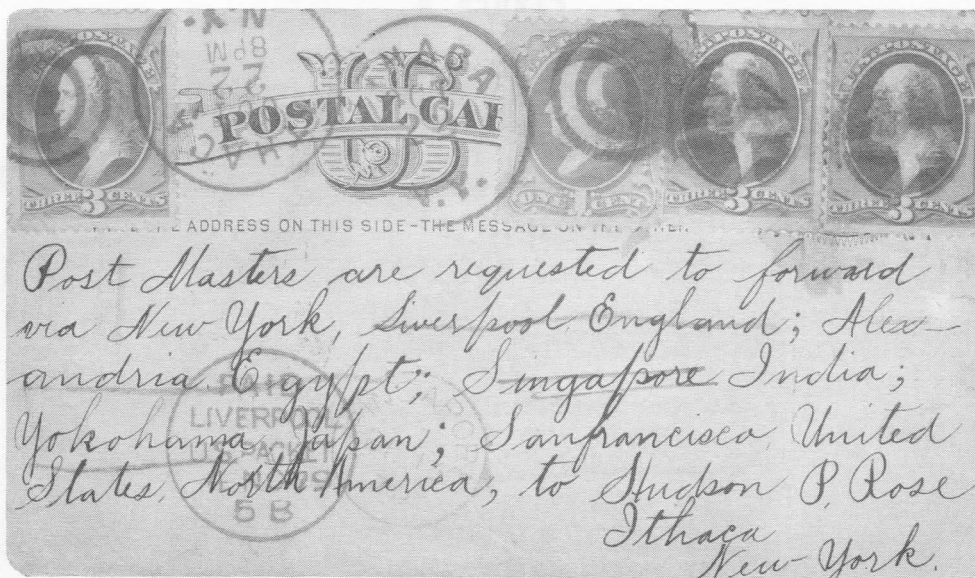 U.S. POSTAGE
THREE 3 CENTS
N.Y.
8 PM
22
ITHACA
POSTAL CAR
U.S. POSTAGE
ONE 1 CENT
U.S. POSTAGE
THREE 3 CENTS
U.S. POSTAGE
THREE 3 CENTS
ADDRESS ON THIS SIDE - THE MESSAGE ON THE OTHER
Post Masters are requested to forward
via New York, Liverpool England; Alex-
andria Egypt; Singapore India;
Yokohama Japan; Sanfrancisco United
States, North America, to Hudson P. Rose
Ithaca
New York.
PAID
LIVERPOOL
U.S. PACKET
5 B